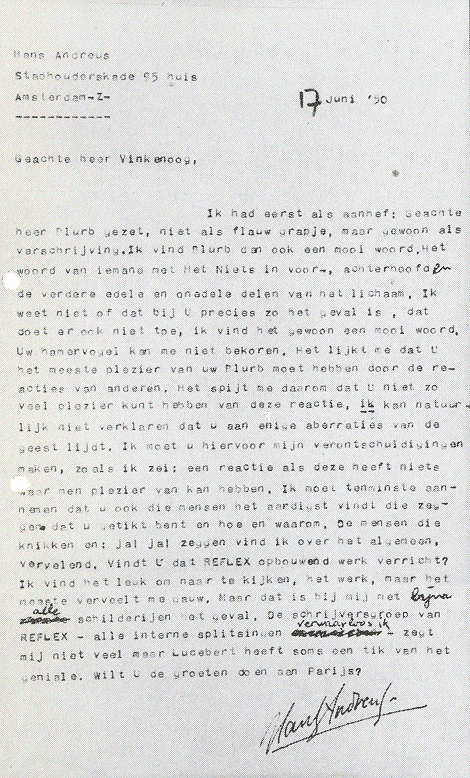 Hans Andreus
Stadhouderskade 95 huis
Amsterdam-Z-
------------
17 Juni '50
Geachte heer Vinkenoog,
Ik had eerst als aanhef: Geachte
heer Blurb gezet, niet als flauw grapje, maar gewoon als
verschrijving.Ik vind Blurb dan ook een mooi woord.Het
woord van iemand met Het Niets in voor-, achterhoofd en
de verdere edele en onedele delen van het lichaam. Ik
weet niet of dat bij U precies zo het geval is , dat
doet er ook niet toe, ik vind het gewoon een mooi woord.
Uw hamervogel kan me niet bekoren. Het lijkt me dat U
het meeste plezier van uw Blurb moet hebben door de re-
acties van anderen. Het spijt me daarom dat U niet zo
veel plezier kunt hebben van deze reactie, ik kan natuur-
lijk niet verklaren dat u aan enige aberraties van de
geest lijdt. Ik moet u hiervoor mijn verontschuldigingen
maken, zoals ik zei: een reactie als deze heeft niets
waar men plezier van kan hebben. Ik moet tenminste aan-
nemen dat u ook die mensen het aardigst vindt die zeg-
gen dat u getikt bent en hoe en waarom. De mensen die
knikken en: ja! ja! zeggen vind ik over het algemeen,
vervelend. Vindt U dat REFLEX opbouwend werk verricht?
Ik vind het leuk om naar te kijken, het werk, maar het
meeste verveelt me gauw. Maar dat is bij mij met bijna
alle schilderijen het geval. De schrijversgroep van
REFLEX - alle interne splitsingen verwaarloos ik - zegt
mij niet veel maar Lucebert heeft soms een tik van het
geniale. Wilt U de groeten doen aan Parijs?
Hans Andreus